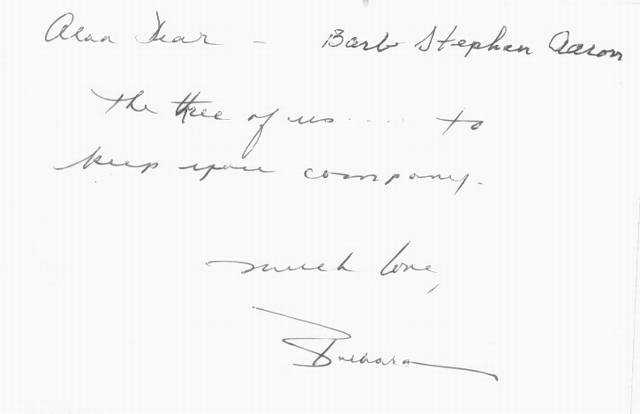 Alan Dear - Barb Stephen Aaron
The three of us .... to
keep you company.
Much love,
Barbara